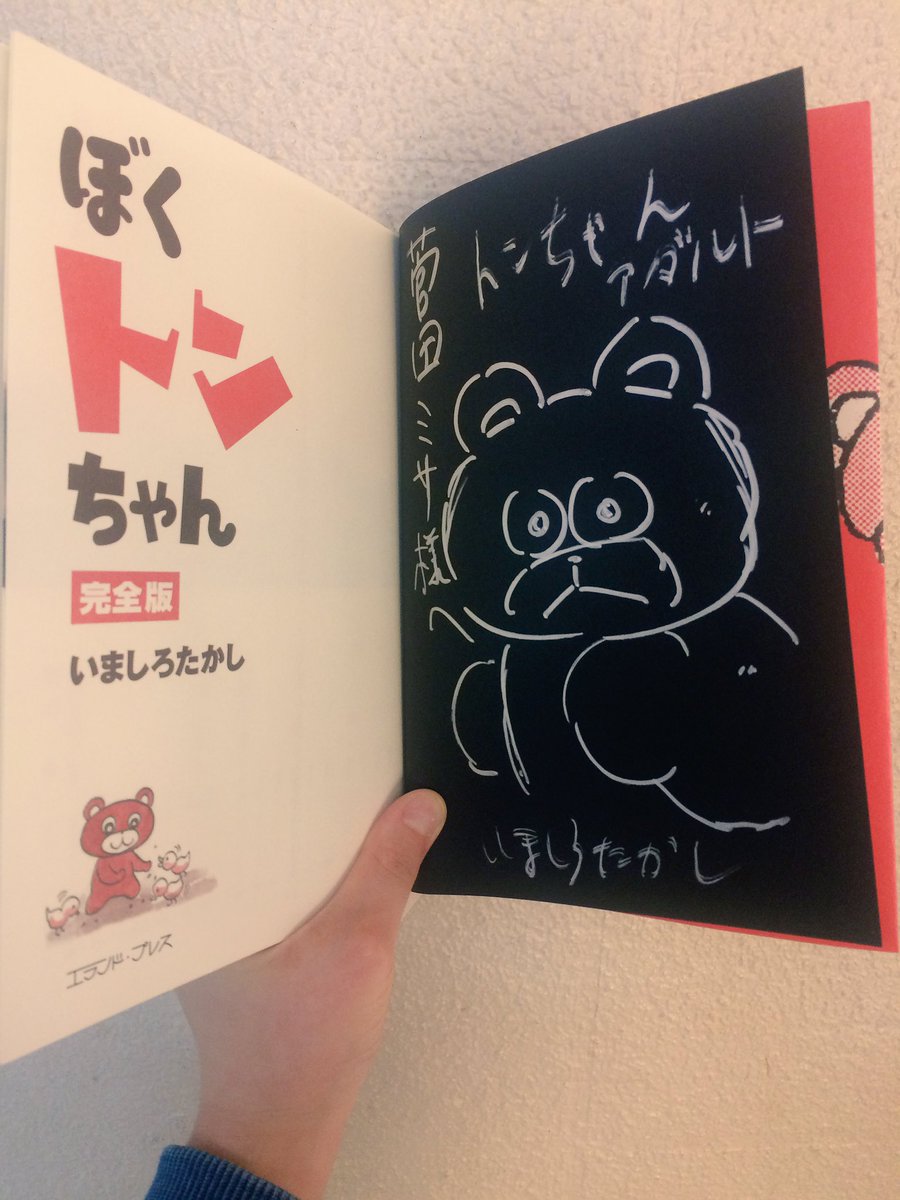 ぼく
トン
ちゃん
完全版
いましろたかし
エランド・プレス
トンちゃん
アダルト
菅田ミサ様へ
いましろたかし